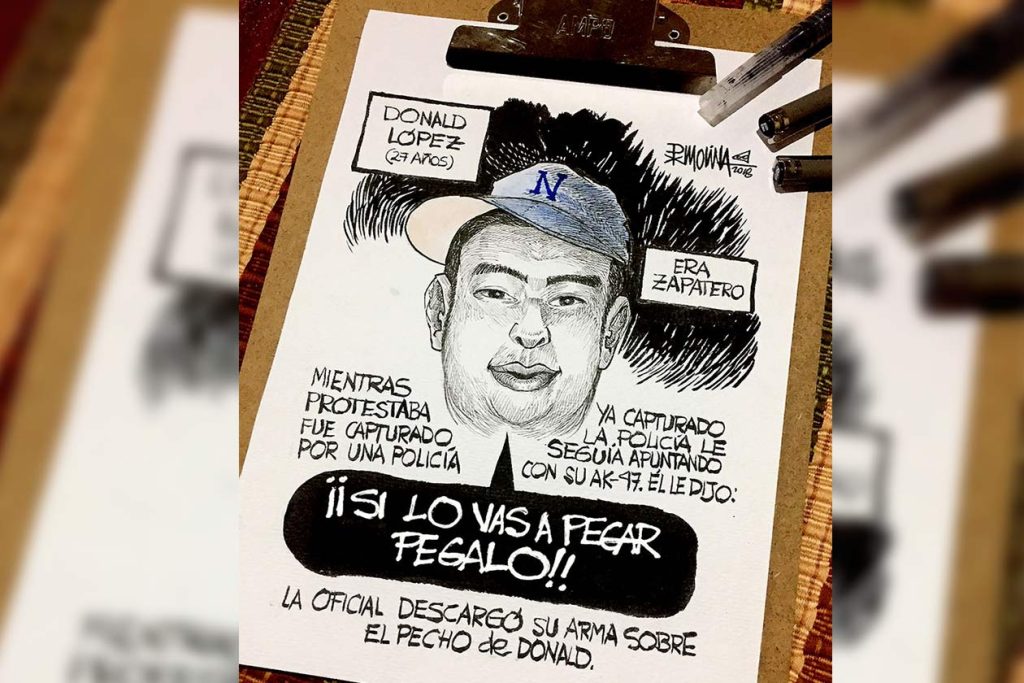 AMPO
DONALD
LÓPEZ
(27 AÑOS)
PXMOLINA
2018
N
ERA
ZAPATERO
MIENTRAS
PROTESTABA
FUE CAPTURADO
POR UNA POLICÍA
YA CAPTURADO
LA POLICÍA LE
SEGUIA APUNTANDO
CON SU AK-47. ÉL LE DIJO:
¡¡SI LO VAS A PEGAR
PEGALO!!
LA OFICIAL DESCARGÓ SU ARMA SOBRE
EL PECHO de DONALD.